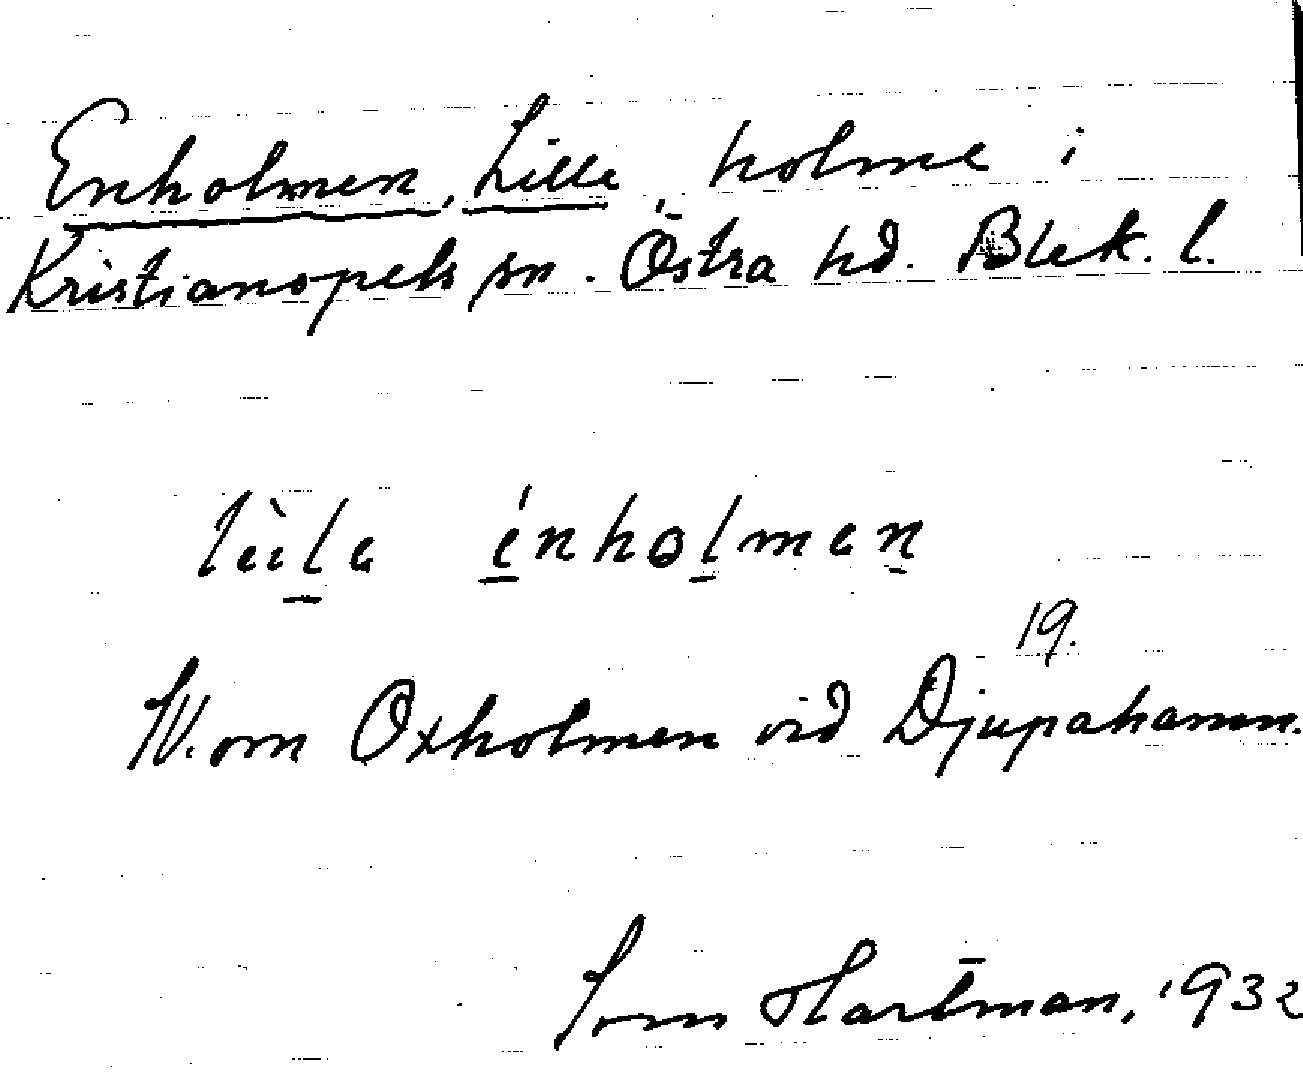 Enholmen, Lille, holme i
Kristianopels sn. Östra hd. Blek. l.
lìla énholmen
19.
W. om Oxholmen vid Djupahamn.
Torsten Hartman, 1932